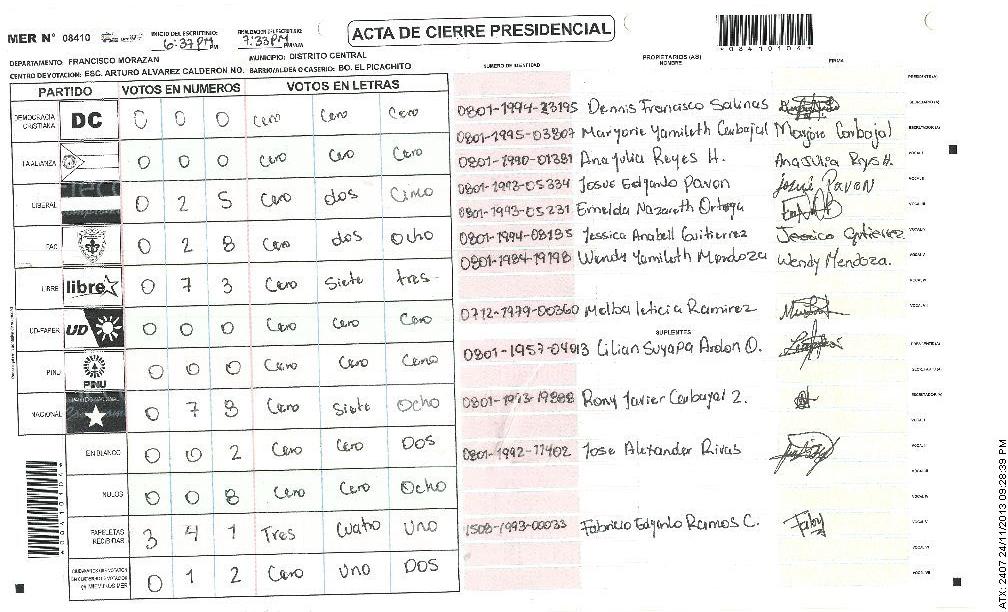 MER N° 08410
INICIO DEL ESCRUTINIO: 6:37 PM
FINALIZACION DEL ESCRUTINIO: 7:33 PM
ACTA DE CIERRE PRESIDENCIAL
08410104
DEPARTAMENTO: FRANCISCO MORAZAN MUNICIPIO: DISTRITO CENTRAL
CENTRO DE VOTACION: ESC. ARTURO ALVAREZ CALDERON NO. BARRIO/ALDEA O CASERIO: BO. EL PICACHITO
NUMERO DE IDENTIDAD PROPIETARIOS (AS) NOMBRE FIRMA
PARTIDO VOTOS EN NUMEROS VOTOS EN LETRAS
DEMOCRACIA CRISTIANA DC 0 0 0 Cero Cero Cero
LA ALIANZA 0 0 0 Cero Cero Cero
LIBERAL 0 2 5 Cero dos Cinco
PAC 0 2 8 Cero dos Ocho
LIBRE libre 0 7 3 Cero Siete tres
UD-FAPER UD 0 0 0 Cero Cero Cero
PINU PINU 0 0 0 Cero Cero Cero
NACIONAL 0 7 8 Cero Siete Ocho
EN BLANCO 0 0 2 Cero Cero Dos
NULOS 0 0 8 Cero Cero Ocho
PAPELETAS RECIBIDAS 3 4 1 Tres Cuatro Uno
0 1 2 Cero Uno Dos
0801-1994-23195 Dennis Francisco Salinas
0801-1995-03807 Maryorie Yamileth Carbajal Maryorie Carbajal
0801-1990-01381 Ana Julia Reyes H. Ana Julia Reyes H.
0801-1993-05334 Josue Edgardo Pavon Josué Pavon
0801-1993-05231 Emelda Nazareth Ortega
0801-1994-08195 Jessica Anabell Guitierrez Jessica Gutierrez
0801-1984-19798 Wendy Yamileth Mendoza Wendy Mendoza.
0712-1979-00360 Melba leticia Ramirez
SUPLENTES
0801-1957-04013 Lilian Suyapa Ardon O.
0801-1993-19888 Rony Javier Carbajal Z.
0801-1992-11402 Jose Alexander Rivas
1508-1993-00033 Fabricio Edgardo Ramos C. Faby
ATX: 2407 24/11/2013 09:28:39 PM